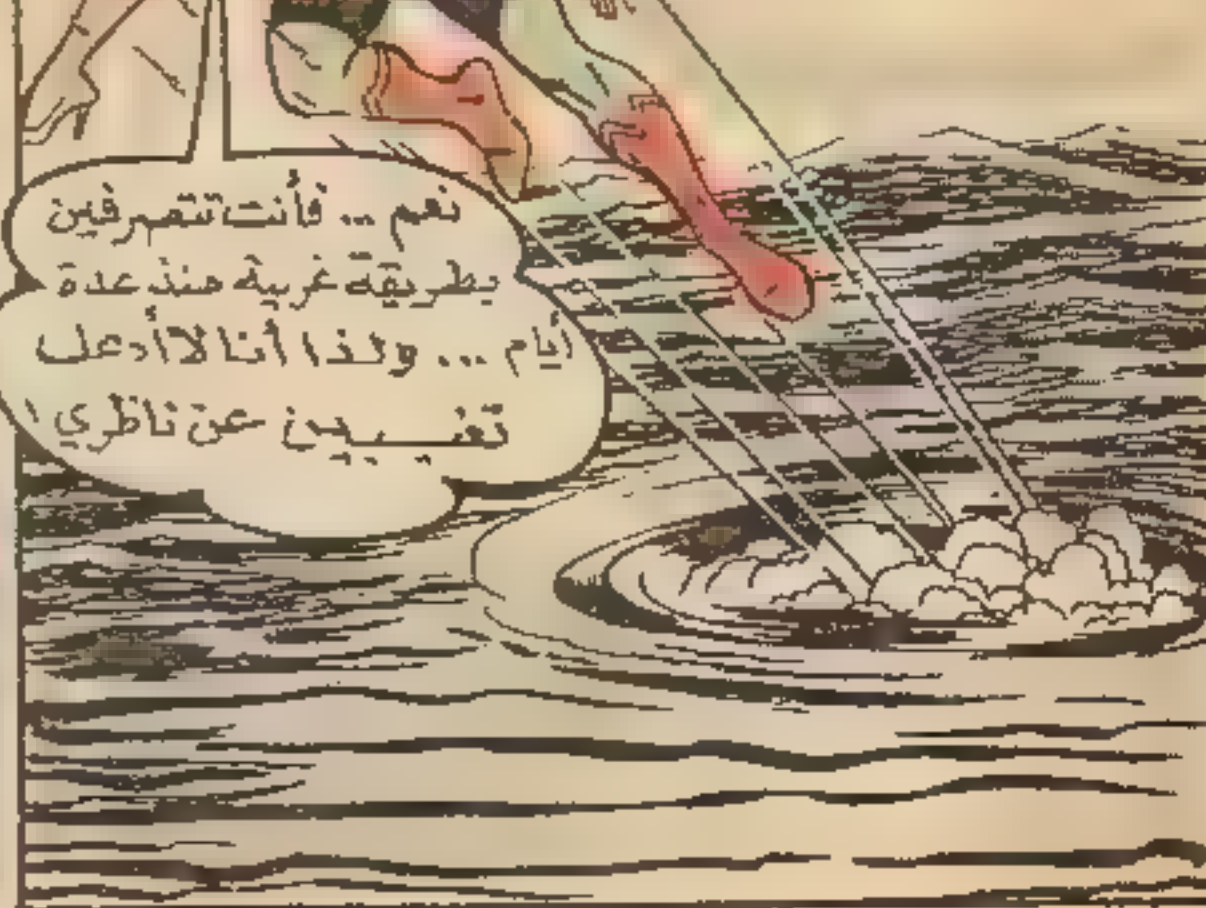 نعم ... فأنت تتصرفين
بطريقة غريبة منذ عدة
أيام ... ولذا أنا لا أدعك
تغيبين عن ناظري !